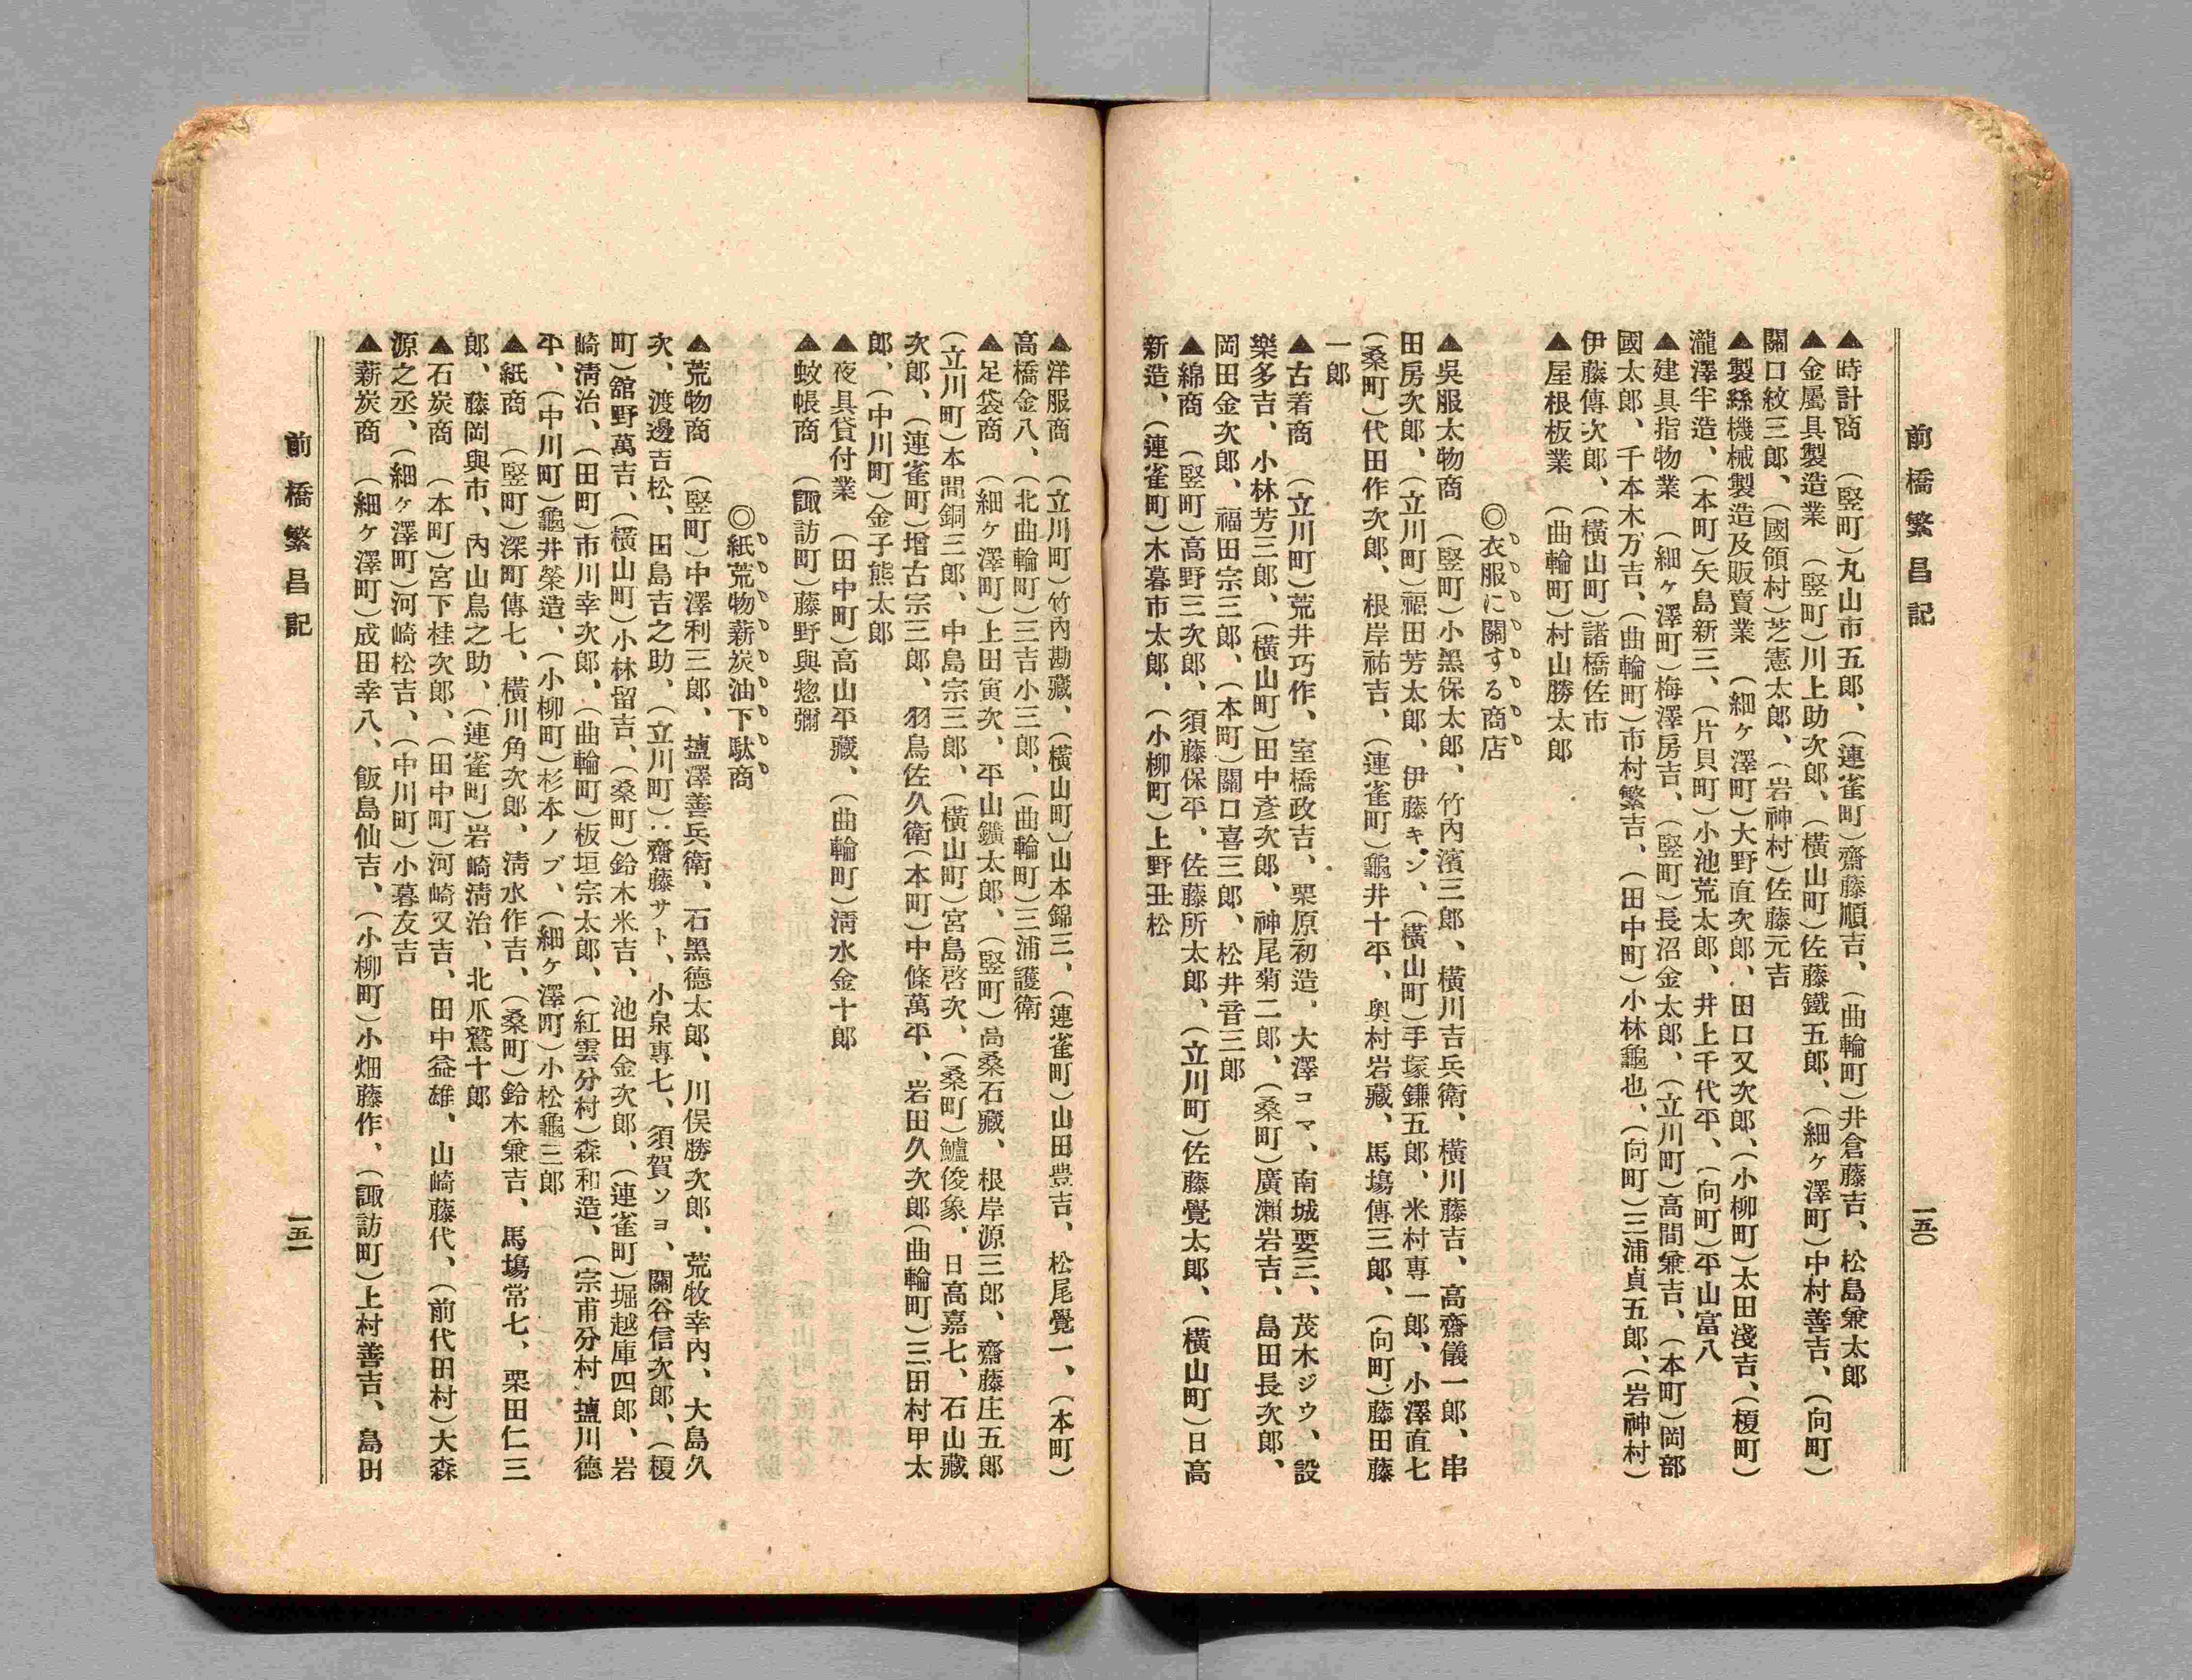 前橋繁昌記
一五〇
▲時計商　(竪町)丸山市五郎、(連雀町)齋藤順吉、(曲輪町)井倉藤吉、松島兼太郎
▲金屬具製造業　(竪町)川上助次郎、(橫山町)佐藤鐵五郎、(細ヶ澤町)中村善吉、(向町)
關口紋三郎、(國領村)芝憲太郎、(岩神村)佐藤元吉
▲製絲機械製造及販賣業　(細ヶ澤町)大野直次郎、田口又次郎、(小柳町)太田淺吉、(榎町)
瀧澤牢造、(本町)矢島新三、(片貝町)小池荒太郎、井上千代平、(向町)平山富八
▲建具指物業　(細ヶ澤町)梅澤房吉、(竪町)長沼金太郎、(立川町)高間兼吉、(本町)岡部
國太郎、千本木万吉、(曲輪町)市村繁吉、(田中町)小林龜也、(向町)三浦貞五郎、(岩神村)
伊藤傳次郎、(橫山町)諸橋佐市
▲屋根板業　(曲輪町)村山勝太郎
◎衣服に關する商店
▲吳服太物商　(竪町)小黑保太郎、竹內濱三郎、橫川吉兵衛、橫川藤吉、高齋儀一郎、串
田房次郎、(立川町)福田芳太郎、伊藤キン、(橫山町)手塚鎌五郎、米村專一郎、小澤直七
(桑町)代田作次郎、根岸祐吉、(連雀町)龜井十平、奧村岩藏、馬塲傳三郎、(向町)藤田藤
一郎
▲古着商　(立川町)荒井巧作、室橋政吉、栗原初造、大澤コマ、南城要三、茂木ジウ、設
樂多吉、小林芳三郎、(橫山町)田中彥次郎、神尾菊二郎、(桑町)廣瀨岩吉、島田長次郎、
岡田金次郎、福田宗三郎、(本町)關口喜三郎、松井音三郎
▲綿商　(竪町)高野三次郎、須藤保平、佐藤所太郎、(立川町)佐藤覺太郎、(橫山町)日高
新造、(連雀町)木暮市太郎、(小柳町)上野丑松
▲洋服商　(立川町)竹內勘藏、(橫山町)山本錦三、(連雀町)山田豊吉、松尾覺一、(本町)
高橋金八、(北曲輪町)三吉小三郎、(曲輪町)三浦護衛
▲足袋商　(細ヶ澤町)上田寅次、平山鑛太郎、(竪町)高桑石藏、根岸源三郎、齋藤庄五郎
(立川町)本間銅三郎、中島宗三郎、(橫山町)宮島啓次、(桑町)鱸俊象、日高嘉七、石山藏
次郎、(連雀町)增古宗三郎、羽鳥佐久衛(本町)中條萬平、岩田久次郎(曲輪町)三田村甲太
郎、(中川町)金子熊太郎
▲夜具貸付業　(田中町)高山平藏、(曲輪町)淸水金十郎
▲蚊帳商　(諏訪町)藤野與惣彌
◎紙荒物薪炭油下駄商
▲荒物商　(竪町)中澤利三郎、塩澤善兵衛、石黑德太郎、川俣勝次郎、荒牧幸內、大島久
次、渡邊吉松、田島吉之助、(立川町)∴齋藤サト、小泉專七、須賀ソヨ、關谷信次郎、(榎
町)舘野萬吉、(橫山町)小林留吉、(桑町)鈴木米吉、池田金次郎、(連雀町)堀越庫四郎、岩
崎淸治、(田町)市川幸次郎、(曲輪町)板垣宗太郎、(紅雲分村)森和造、(宗甫分村、塩川德
平、(中川町)龜井榮造、(小柳町)杉本ノブ、(細ヶ澤町)小松龜三郎
▲紙商　(竪町)深町傳七、橫川角次郎、淸水作吉、(桑町)鈴木兼吉、馬塲常七、栗田仁三
郎、藤岡與市、內山鳥之助、(連雀町)岩崎淸治、北爪鷲十郎
▲石炭商　(本町)宮下桂次郎、(田中町)河崎又吉、田中益雄、山崎藤代、(前代田村)大森
源之丞、(細ヶ澤町)河崎松吉、(中川町)小暮友吉
▲薪炭商　(細ヶ澤町)成田幸八、飯島仙吉、(小柳町)小畑藤作、(諏訪町)上村善吉、島田
前橋繁昌記
一五一